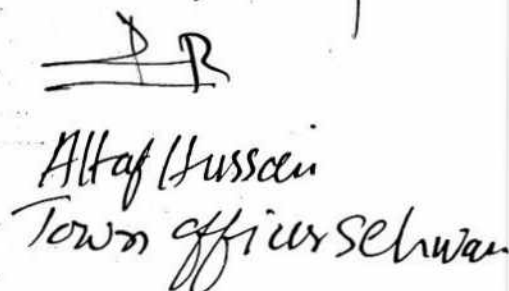 Altaf Hussain
Town officer Sehwan